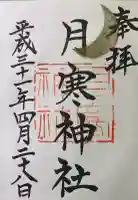 奉拝
月寒神社
平成三十一年四月二十八日